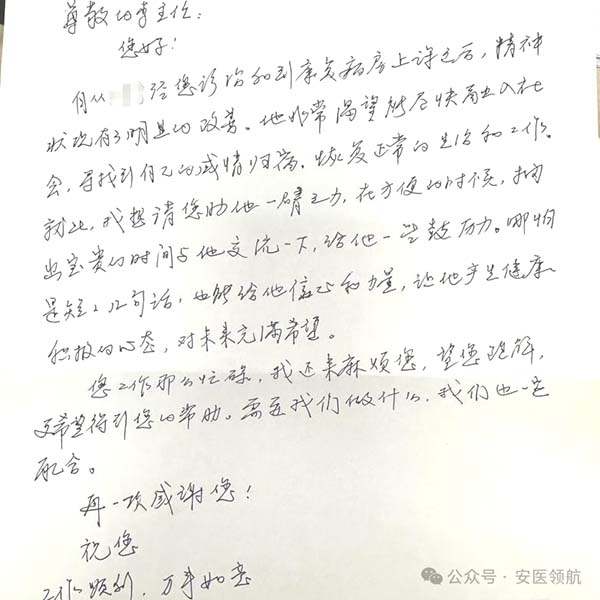 尊敬的李主任：
您好！
自从 经您诊治和到康复病房上课之后，精神
状况有了明显的改善。他非常渴望能尽快融入社
会，寻找到自己的感情归宿，恢复正常的生活和工作。
就此，我想请您助他一臂之力，在方便的时候，抽
出宝贵的时间与他交流一下，给他一些鼓励。哪怕
是短短几句话，也能给他信心和力量，让他产生健康
积极的心态，对未来充满希望。
您工作那么忙碌，我还来麻烦您，望您理解，
更希望得到您的帮助。需要我们做什么，我们也一定
配合。
再一次感谢您！
祝您
工作顺利，万事如意
公众号·安医领航